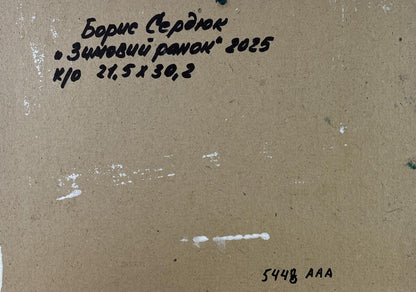 Борис Сердюк
"Зимовий ранок" 2025
к/о 21,5 х 30,2
5448 ААА